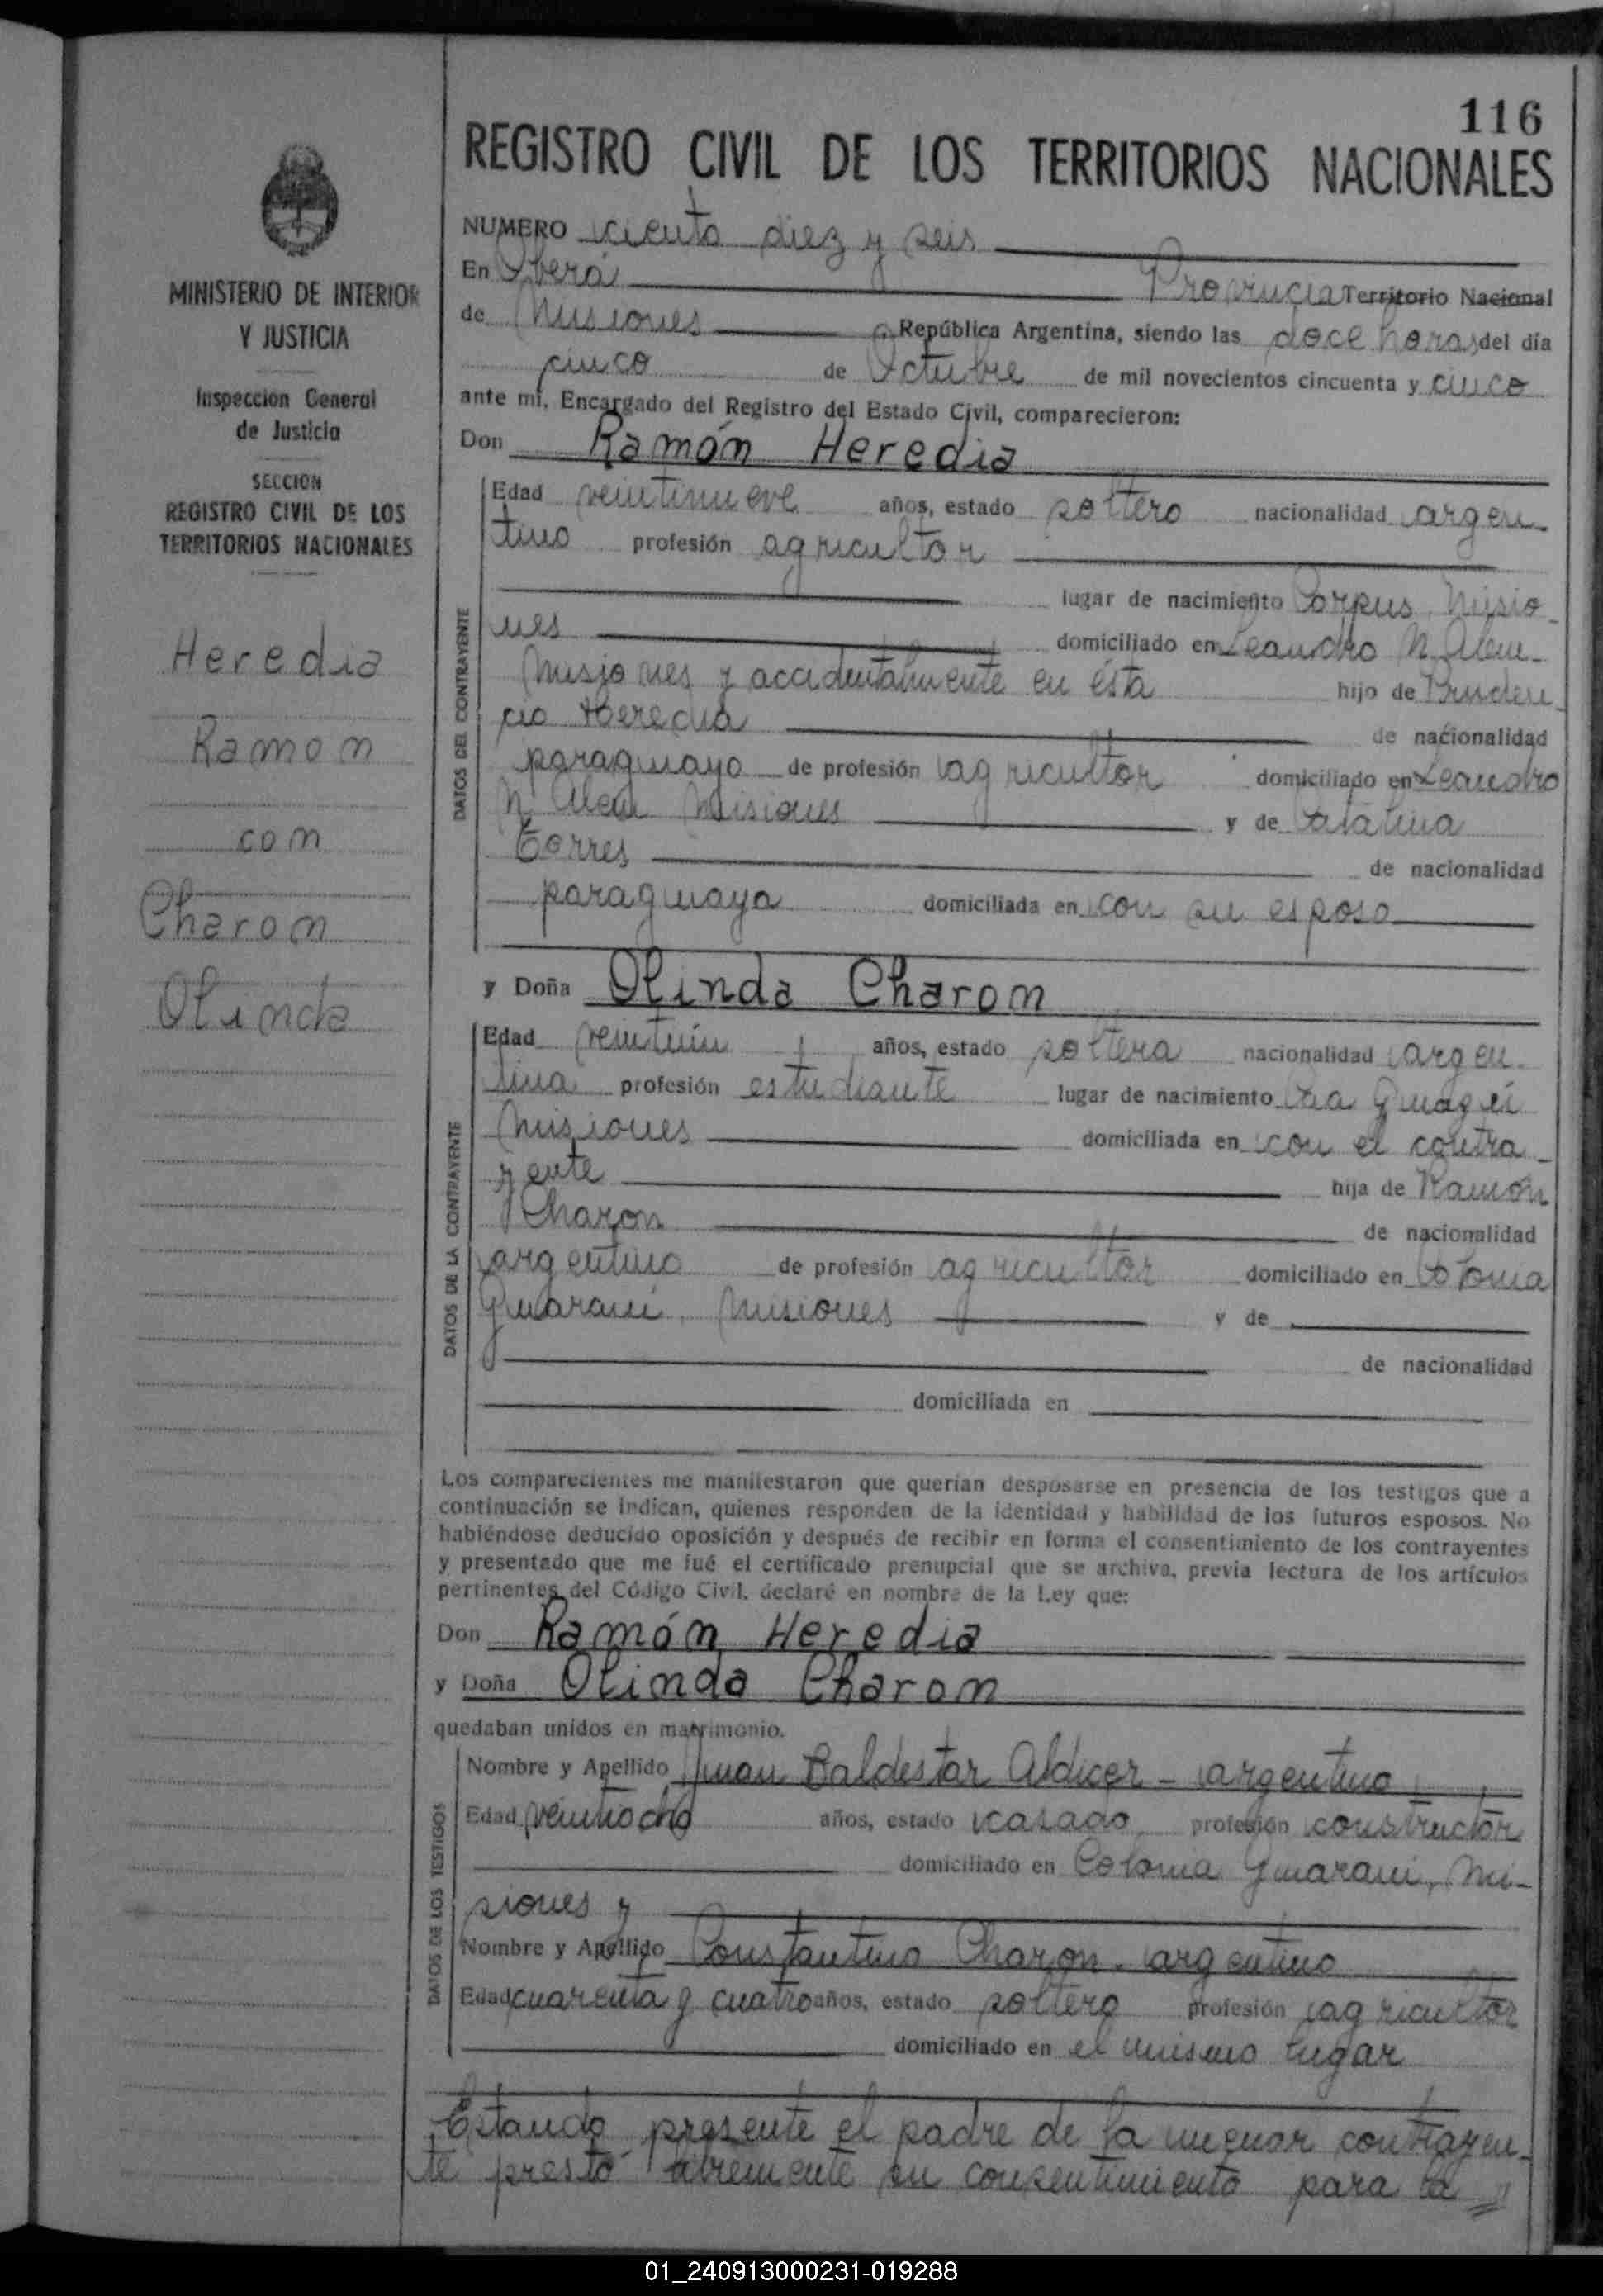 116
REGISTRO CIVIL DE LOS TERRITORIOS NACIONALES
MINISTERIO DE INTERIOR
Y JUSTICIA
Inspeccion General
de Justicia
SECCION
REGISTRO CIVIL DE LOS
TERRITORIOS NACIONALES
Heredia
Ramon
con
Charon
Olinda
NUMERO ciento diez y seis
En Oberá Provincia Territorio Nacional
de Misiones República Argentina, siendo las doce horas del día
cinco de Octubre de mil novecientos cincuenta y cinco
ante mí, Encargado del Registro del Estado Civil, comparecieron:
Don Ramón Heredia
DATOS DEL CONTRAYENTE
Edad veintinueve años, estado soltero nacionalidad argen-
tino profesión agricultor
lugar de nacimiento Corpus, Misio-
nes domiciliado en Leandro N. Alem-
Misiones y accidentalmente en ésta hijo de Pruden-
cio Heredia de nacionalidad
paraguayo de profesión agricultor domiciliado en Leandro
N. Alem Misiones y de Catalina
Torres de nacionalidad
paraguaya domiciliada en con su esposo
y Doña Olinda Charon
DATOS DE LA CONTRAYENTE
Edad veintiún años, estado soltera nacionalidad argen-
tina profesión estudiante lugar de nacimiento
Misiones domiciliada en con el contra-
yente hija de Ramón
Charon de nacionalidad
argentino de profesión agricultor domiciliado en Colonia
Guaraní, Misiones y de
de nacionalidad
domiciliada en
Los comparecientes me manifestaron que querían desposarse en presencia de los testigos que a
continuación se indican, quienes responden de la identidad y habilidad de los futuros esposos. No
habiéndose deducido oposición y después de recibir en forma el consentimiento de los contrayentes
y presentado que me fué el certificado prenupcial que se archiva, previa lectura de los artículos
pertinentes del Código Civil, declaré en nombre de la Ley que:
Don Ramón Heredia
y Doña Olinda Charon
quedaban unidos en matrimonio.
DATOS DE LOS TESTIGOS
Nombre y Apellido Juan Baldestar Aldicer - argentino
Edad veintiocho años, estado casado profesión constructor
domiciliado en Colonia Guaraní, Mi-
siones y
Nombre y Apellido Constantino Charon - argentino
Edad cuarenta y cuatro años, estado soltero profesión agricultor
domiciliado en el mismo lugar
Estando presente el padre de la menor contrayen-
te prestó libremente su consentimiento para la
01_240913000231-019288